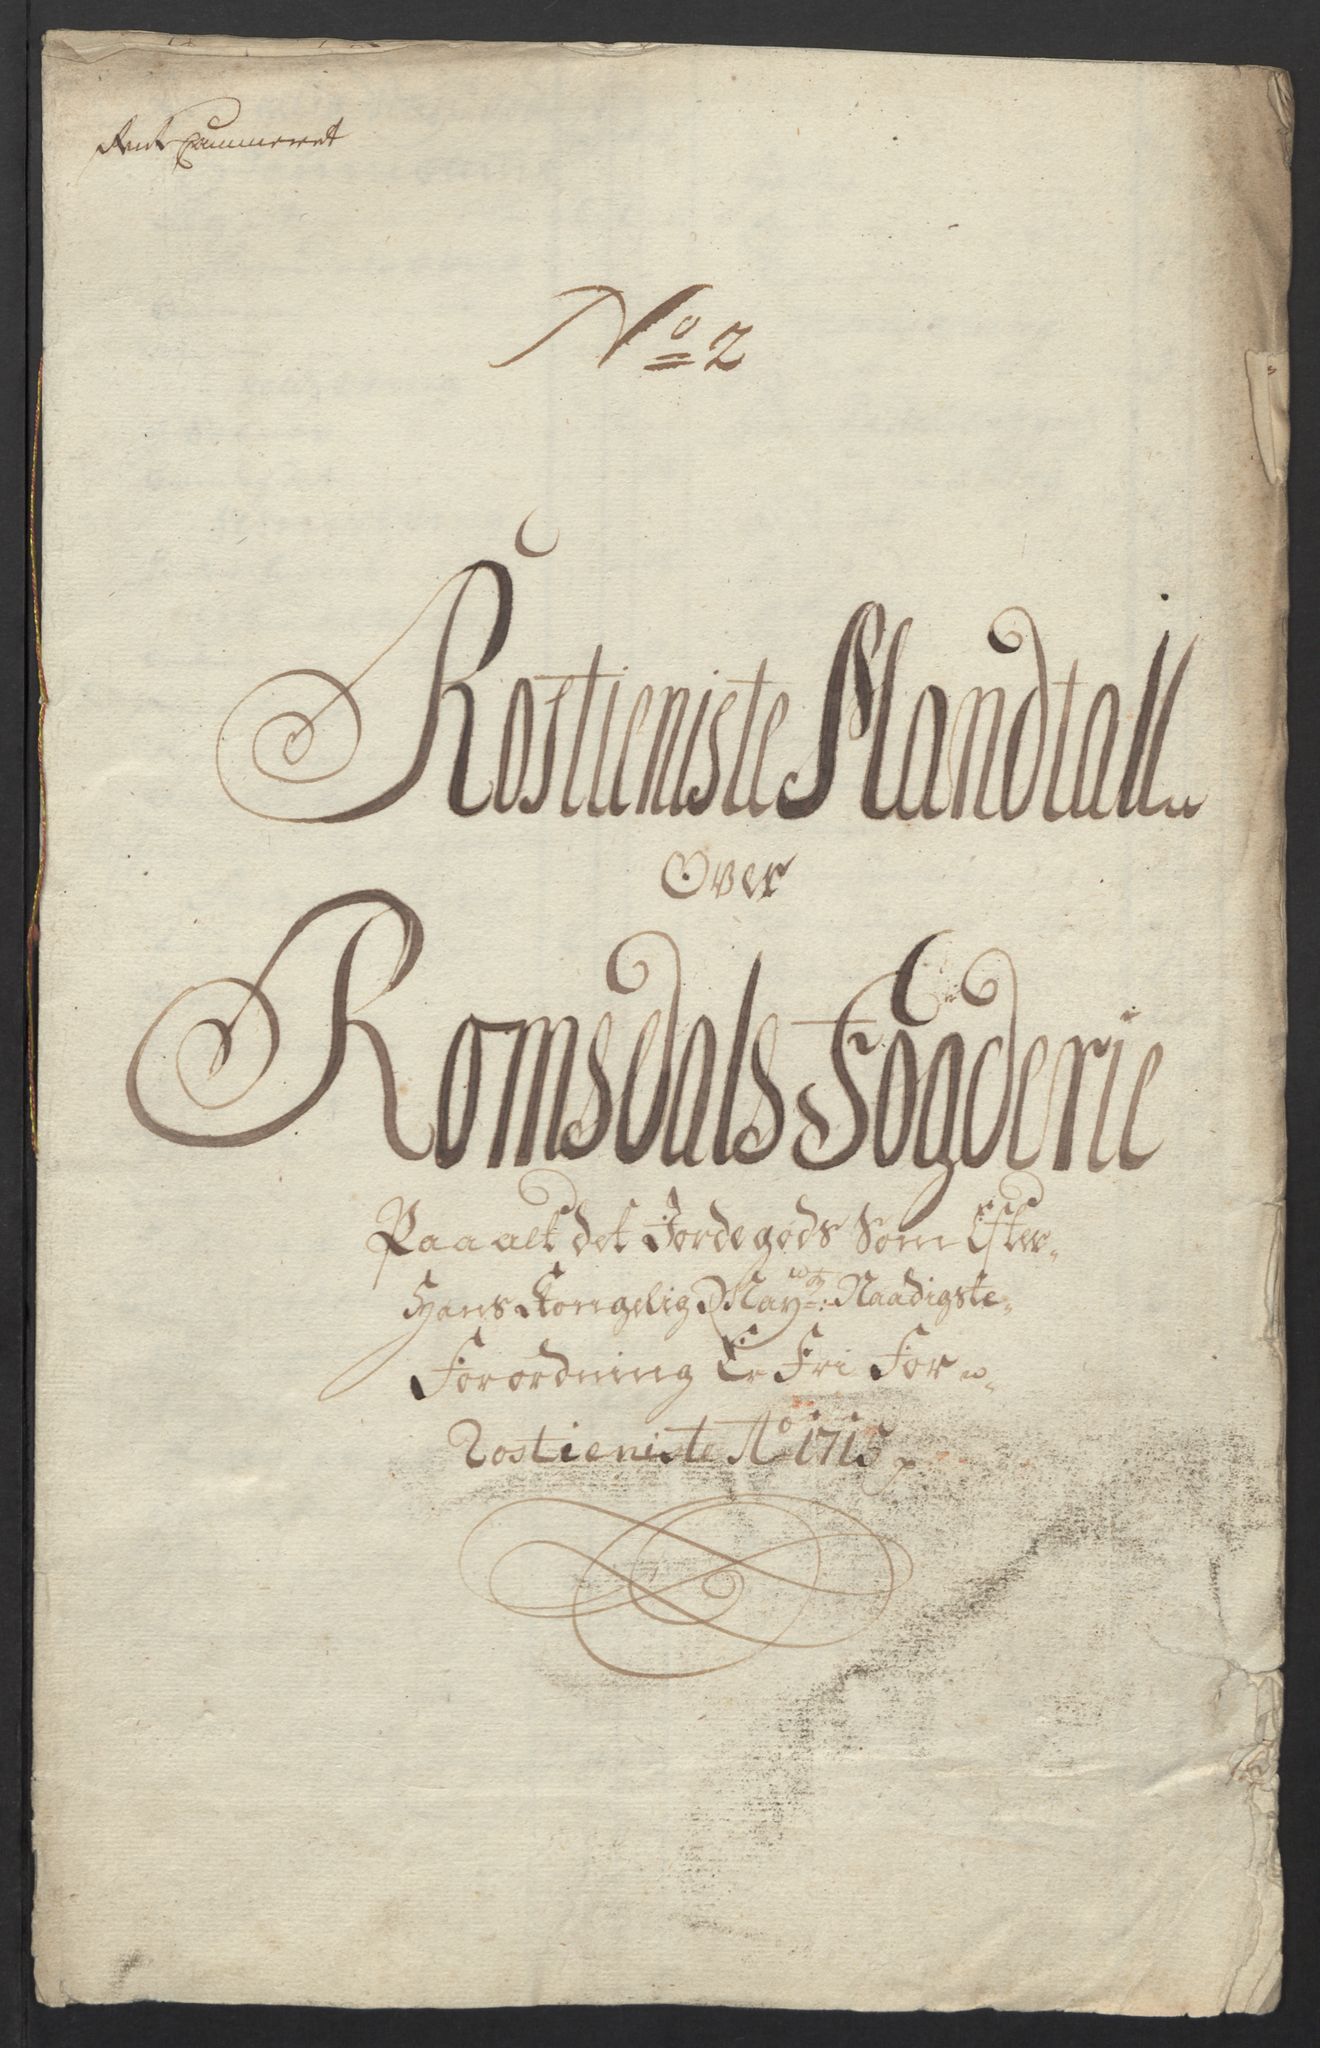 Rent Cammeret
No 2
Rostieniste Mandtall
Over
Romsdals Fogderie
Paa alt det Jordegods Som Efter
Hans Kongelig May: Naadigste
Forordning Er Fri For
Rostieniste Ao 1715